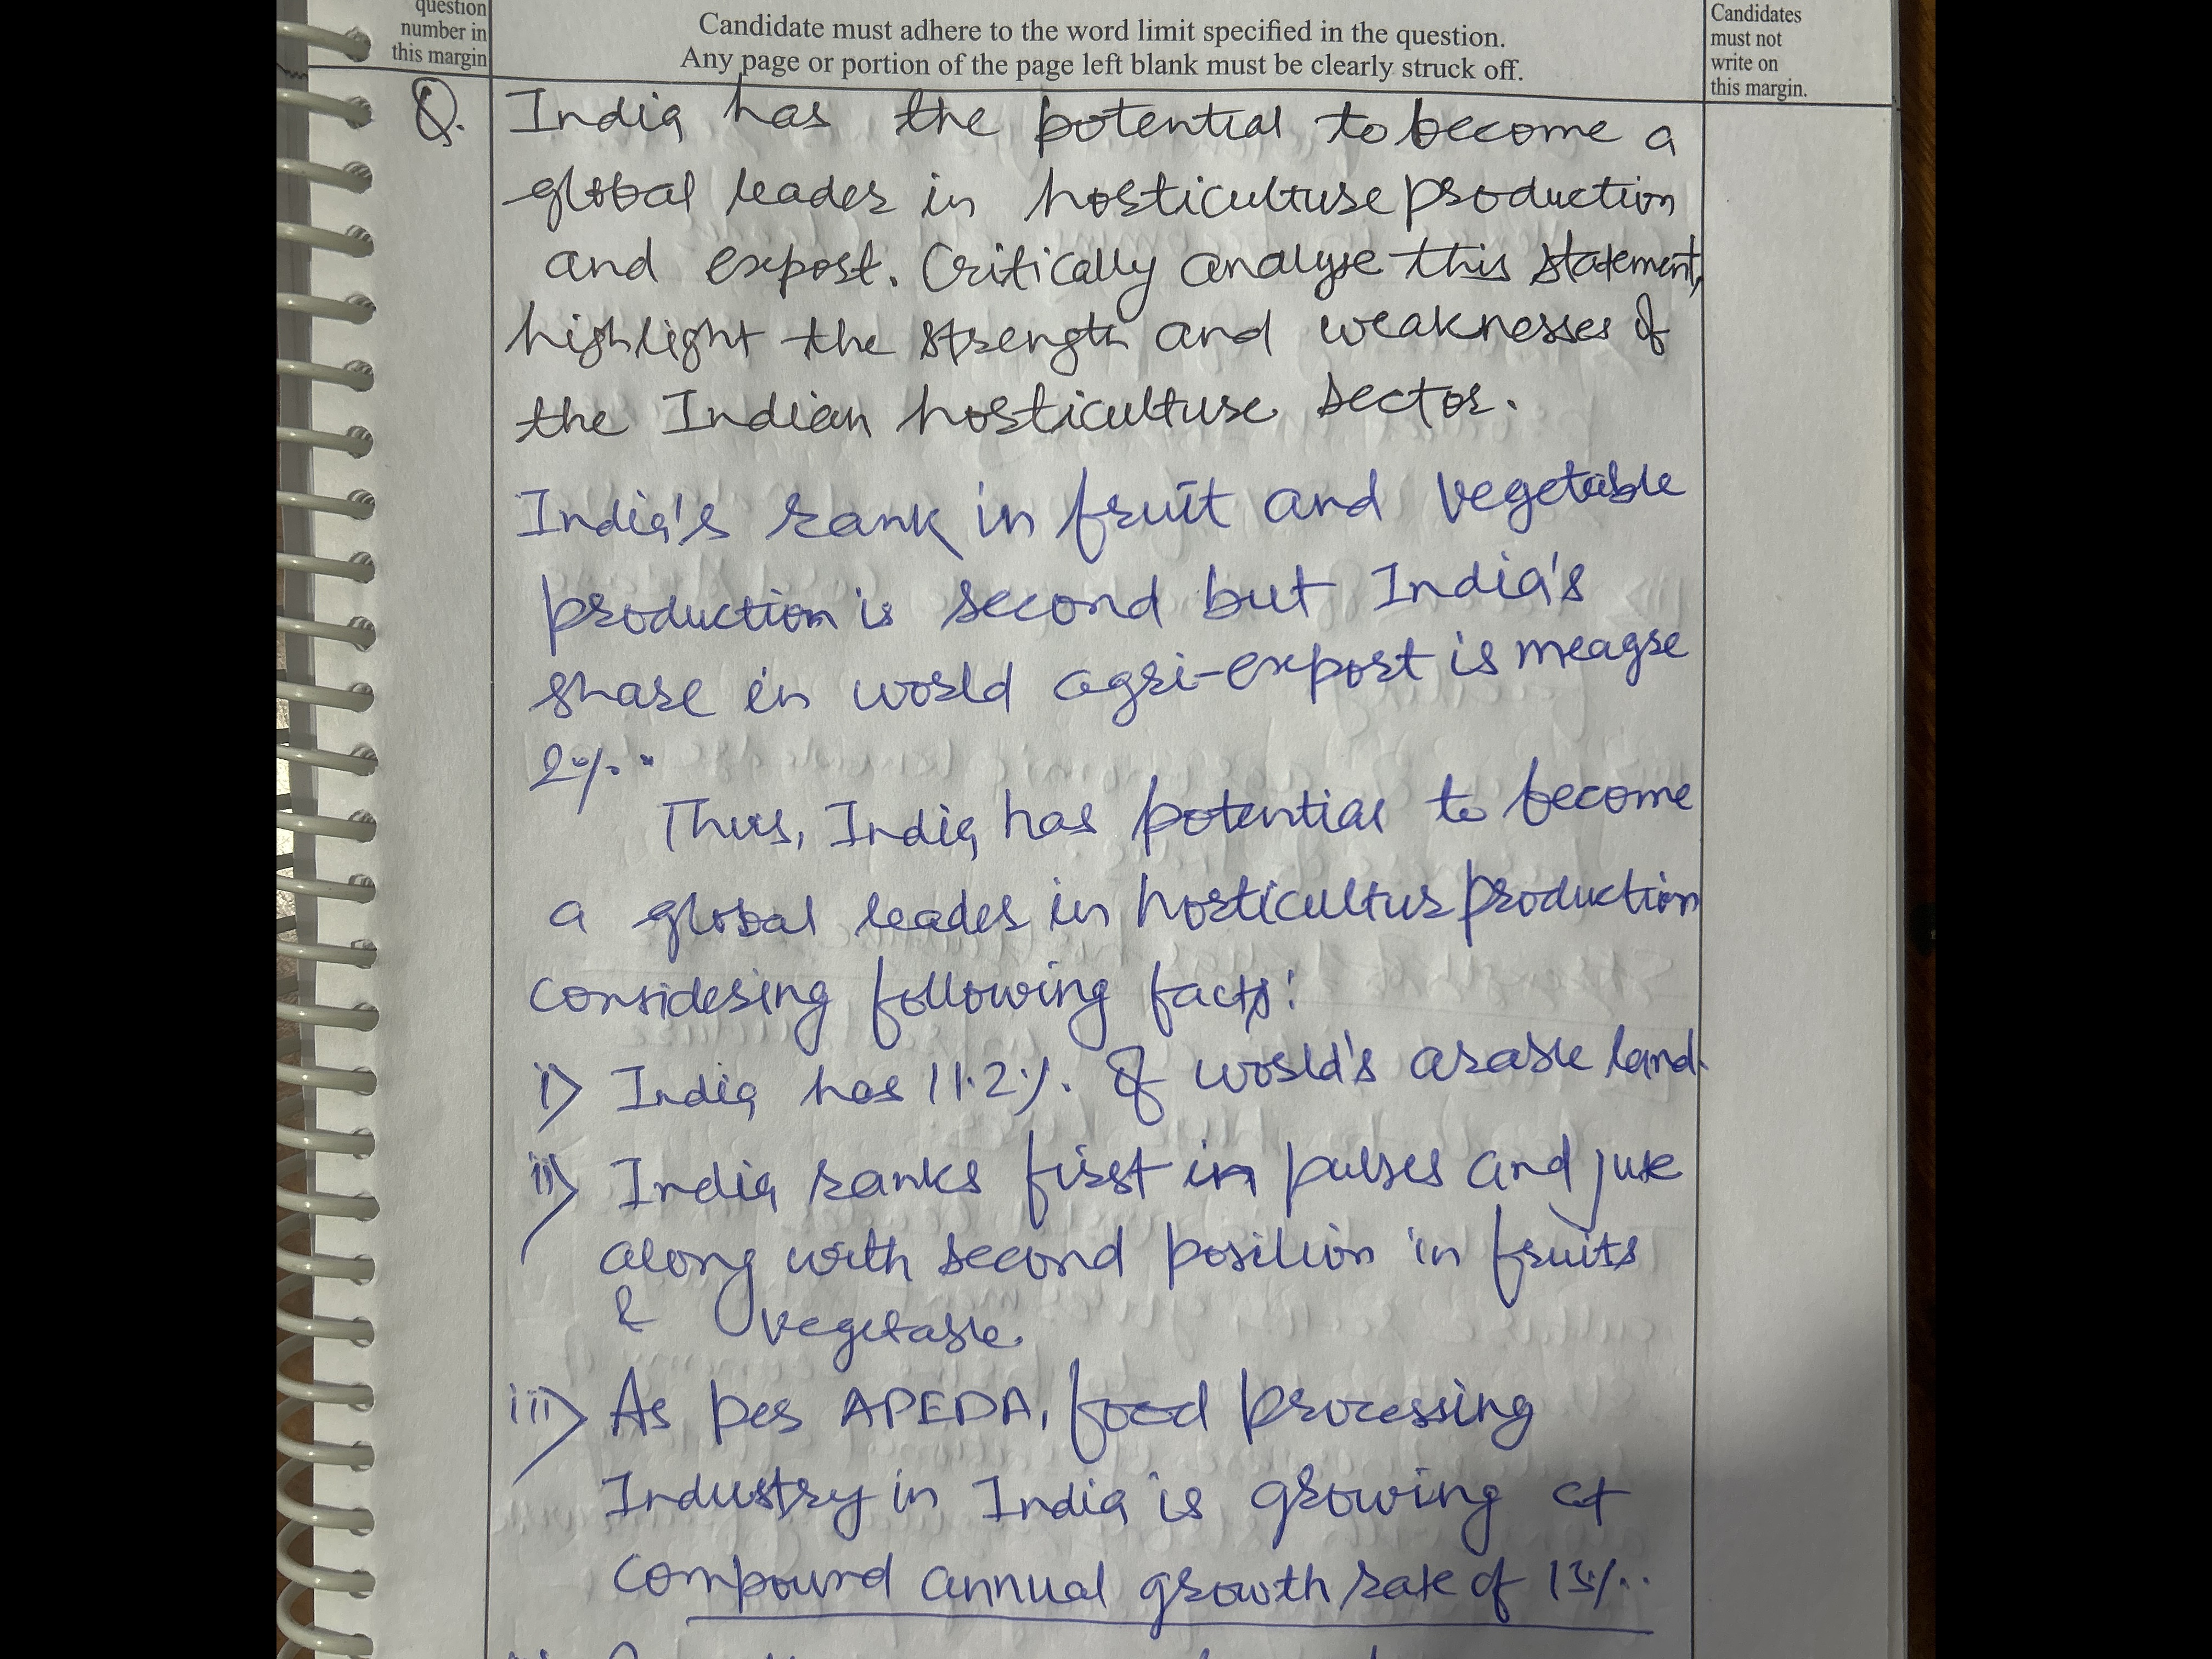 question
number in
this margin
Candidate must adhere to the word limit specified in the question.
Any page or portion of the page left blank must be clearly struck off.
Candidates
must not
write on
this margin.
Q. India has the potential to become a
global leader in horticulture production
and export. Critically analyse this statement,
highlight the strength and weaknesses of
the Indian horticulture sector.
India's rank in fruit and vegetable
production is second but India's
share in world agri-export is meagre
2%.
Thus, India has potential to become
a global leader in horticultur production
considering following facts:
i) India has 11.2%. of world's arable land.
ii) India ranks first in pulses and jute
along with second position in fruits
& vegetable.
iii) As per APEDA, food processing
Industry in India is growing at
compound annual growth rate of 13%.